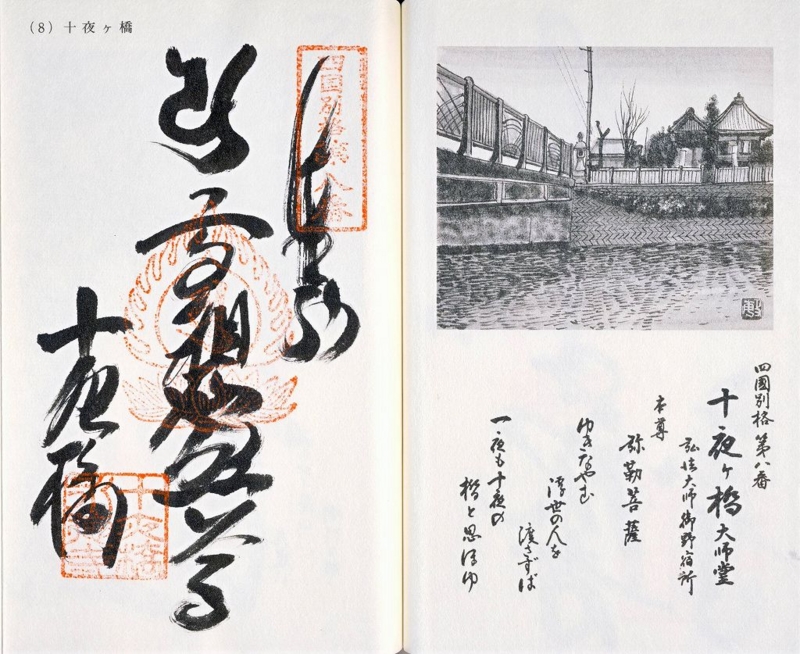 (8) 十夜ヶ橋
四国別格第八番
十夜橋
四國別格 第八番
十夜ヶ橋大师堂
弘法大师御野宿所
本尊
弥勒菩薩
ゆきなやむ
浮世の人を
渡さずば
一夜も十夜の
橋と思ほゆ